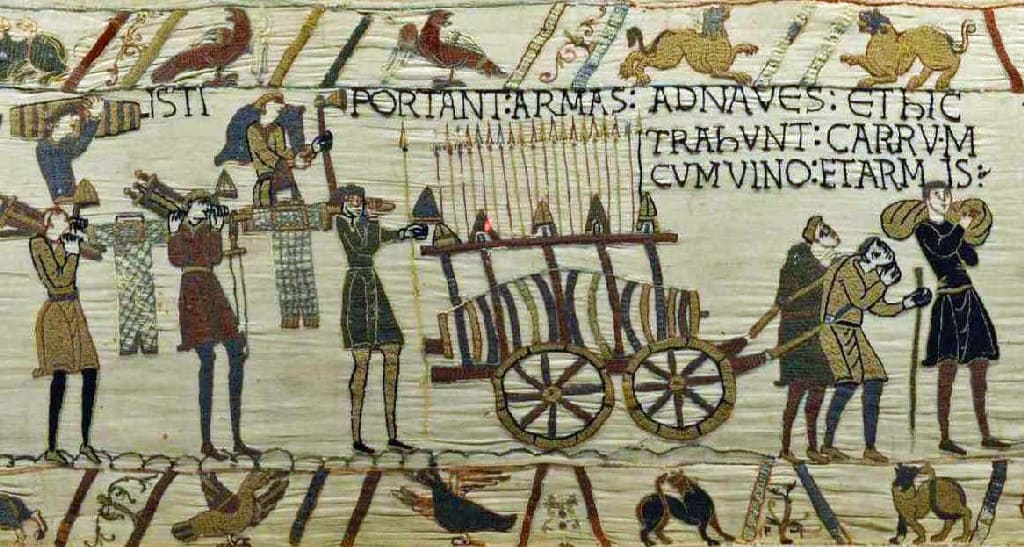 ISTI PORTANT:ARMAS: ADNAVES: EThIC
TRAhUNT: CARRVM
CVMVINO:ETARMIS: